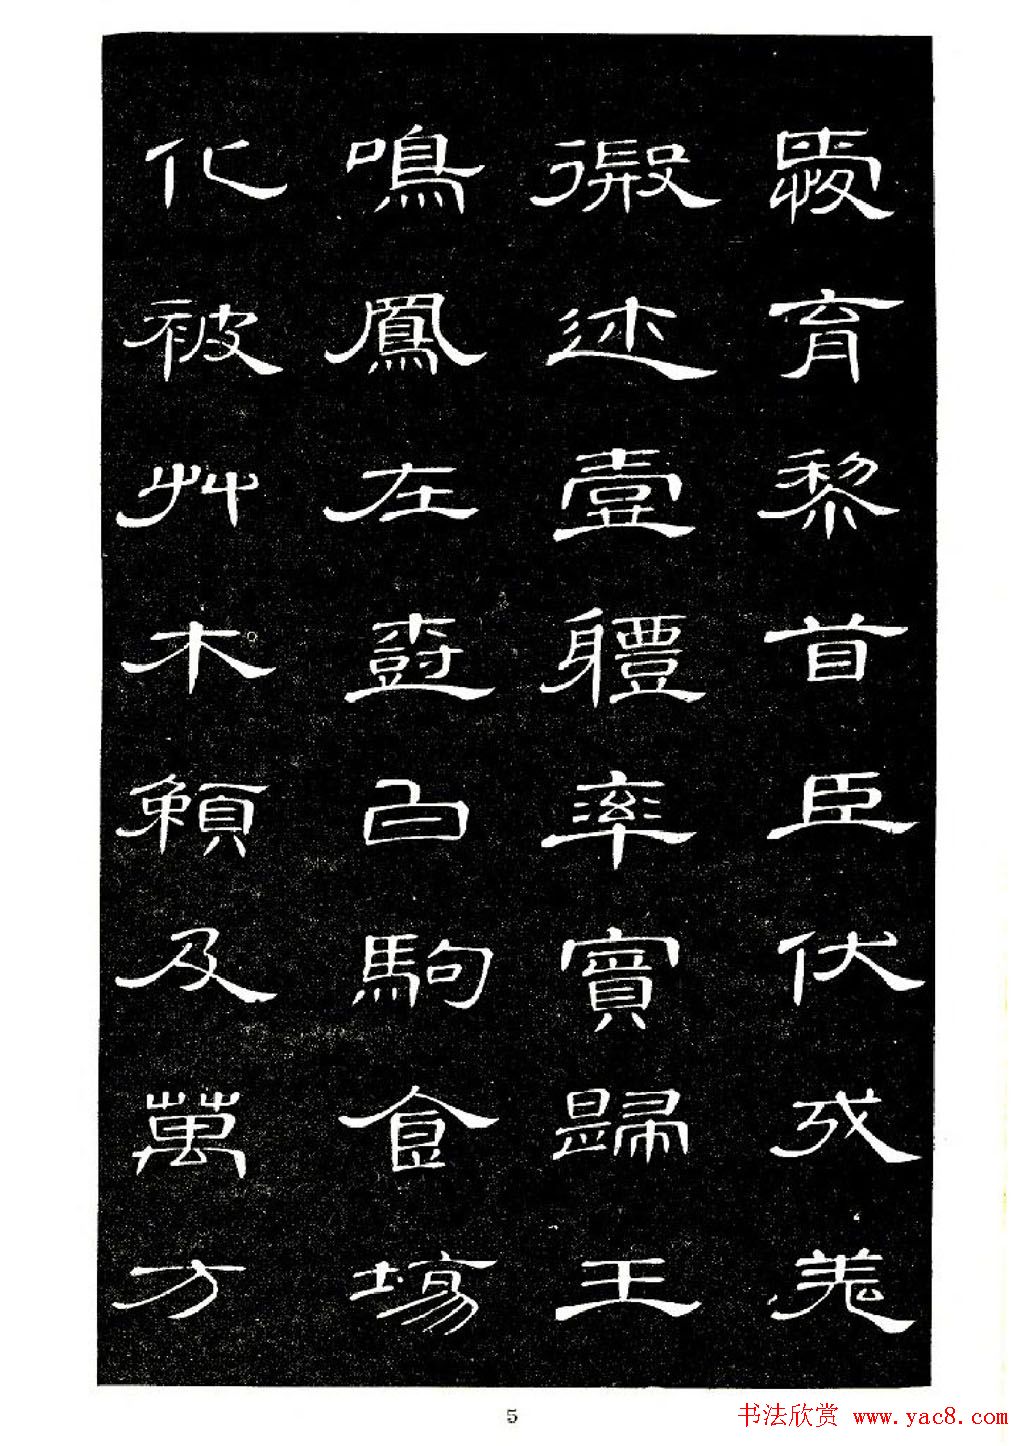 愛育黎首臣伏戎羌
徦迩壹軆率賓歸王
鳴鳳在樹白駒食場
化被艸木賴及萬方
5
书法欣赏 www.yac8.com